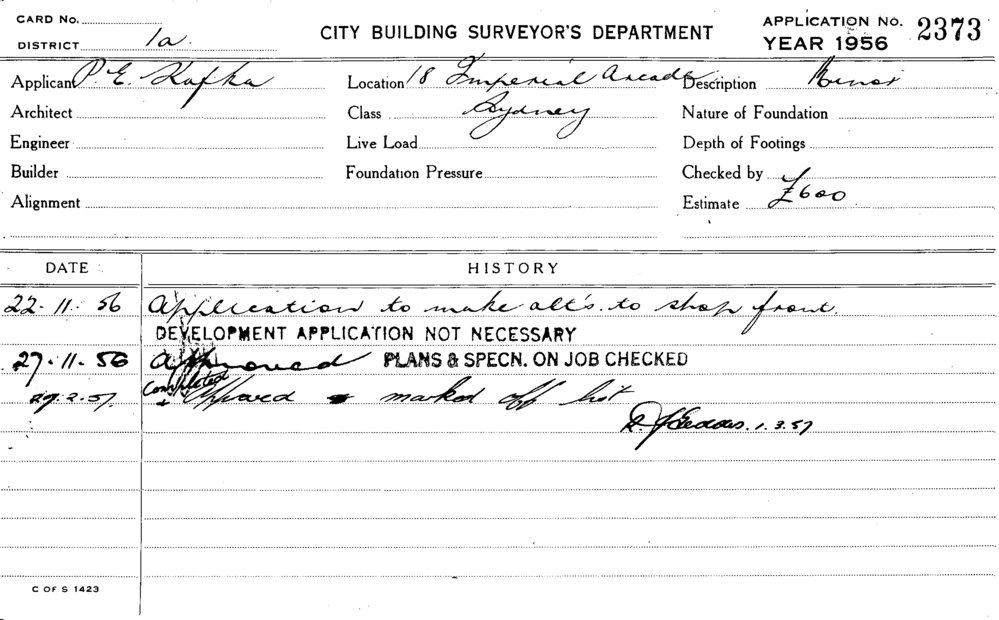 CARD No.
DISTRICT 1a.
CITY BUILDING SURVEYOR'S DEPARTMENT
APPLICATION No. 2373
YEAR 1956
Applicant P. E. Kafka
Location 18 Imperial Arcade
Description Minor
Architect
Class Sydney
Nature of Foundation
Engineer
Live Load
Depth of Footings
Builder
Foundation Pressure
Checked by
Alignment
Estimate £600
DATE HISTORY
22.11.56 Application to make alt's. to shop front.
DEVELOPMENT APPLICATION NOT NECESSARY
27.11.56 Approved PLANS & SPECN. ON JOB CHECKED
Completed
29.2.57 + marked off list
1.3.57
C OF S 1423